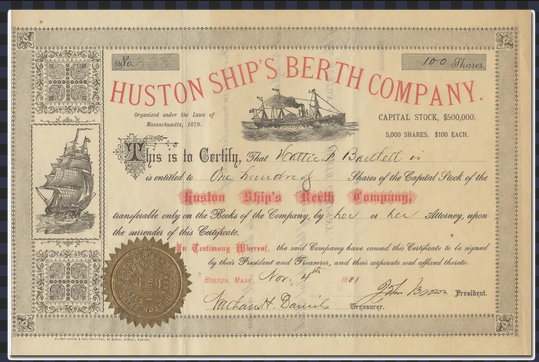 No.
100 Shares.
HUSTON SHIP'S BERTH COMPANY.
Organized under the Laws of
Massachusetts, 1879.
CAPITAL STOCK, $500,000.
5,000 SHARES. $100 EACH.
This is to Certify, That Hattie F. Bartlett is
is entitled to One hundred Shares of the Capital Stock of the
Huston Ship's Berth Company,
transferable only on the Books of the Company, by her or her Attorney, upon
the surrender of this Certificate.
In Testimony Whereof, the said Company have caused this Certificate to be signed
by their President and Treasurer, and their corporate seal affixed thereto.
BOSTON, MASS. Nov. 4th 1881
John Brown President.
Nathan H. Daniels
Treasurer.